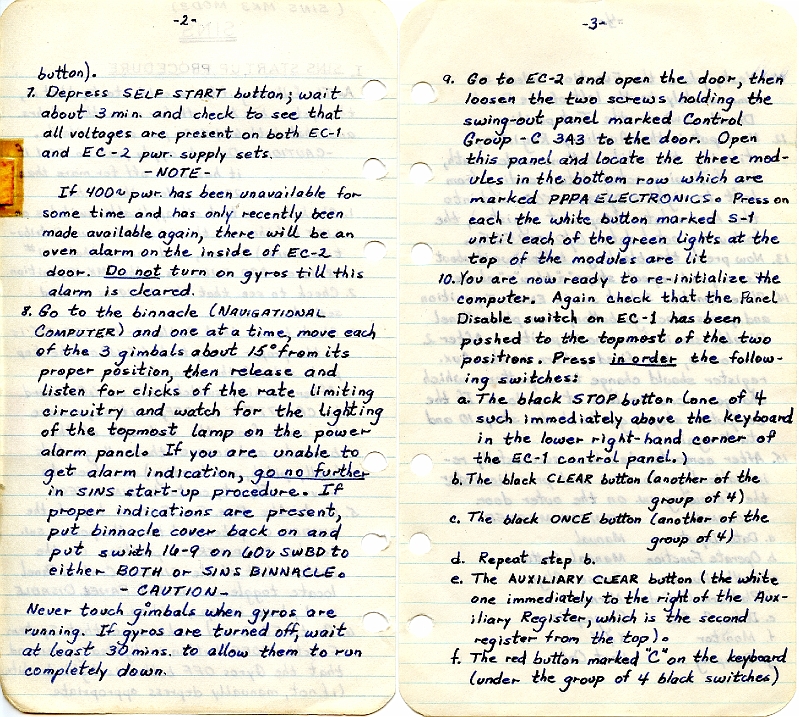 -2-
button).
7. Depress SELF START button; wait
about 3 min. and check to see that
all voltages are present on both EC-1
and EC-2 pwr. supply sets.
-NOTE-
If 400~ pwr. has been unavailable for
some time and has only recently been
made available again, there will be an
oven alarm on the inside of EC-2
door. Do not turn on gyros till this
alarm is cleared.
8. Go to the binnacle (NAVIGATIONAL
COMPUTER) and one at a time, move each
of the 3 gimbals about 15° from its
proper position, then release and
listen for clicks of the rate limiting
circuitry and watch for the lighting
of the topmost lamp on the power
alarm panel. If you are unable to
get alarm indication, go no further
in SINS start-up procedure. If
proper indications are present,
put binnacle cover back on and
put swith 16-9 on 60v SWBD to
either BOTH or SINS BINNACLE.
-CAUTION-
Never touch gimbals when gyros are
running. If gyros are turned off, wait
at least 30 mins. to allow them to run
completely down.
-3-
9. Go to EC-2 and open the door, then
loosen the two screws holding the
swing-out panel marked Control
Group-C 3A3 to the door. Open
this panel and locate the three mod-
ules in the bottom row which are
marked PPPA ELECTRONICS. Press on
each the white button marked S-1
until each of the green lights at the
top of the modules are lit
10. You are now ready to re-initialize the
computer. Again check that the Panel
Disable switch on EC-1 has been
pushed to the topmost of the two
positions. Press in order the follow-
ing switches:
a. The black STOP button (one of 4
such immediately above the keyboard
in the lower right-hand corner of
the EC-1 control panel.)
b. The black CLEAR button (another of the
group of 4)
c. The black ONCE button (another of the
group of 4)
d. Repeat step b.
e. The AUXILIARY CLEAR button (the white
one immediately to the right of the Aux-
iliary Register, which is the second
register from the top).
f. The red button marked "C" on the keyboard
(under the group of 4 black switches)